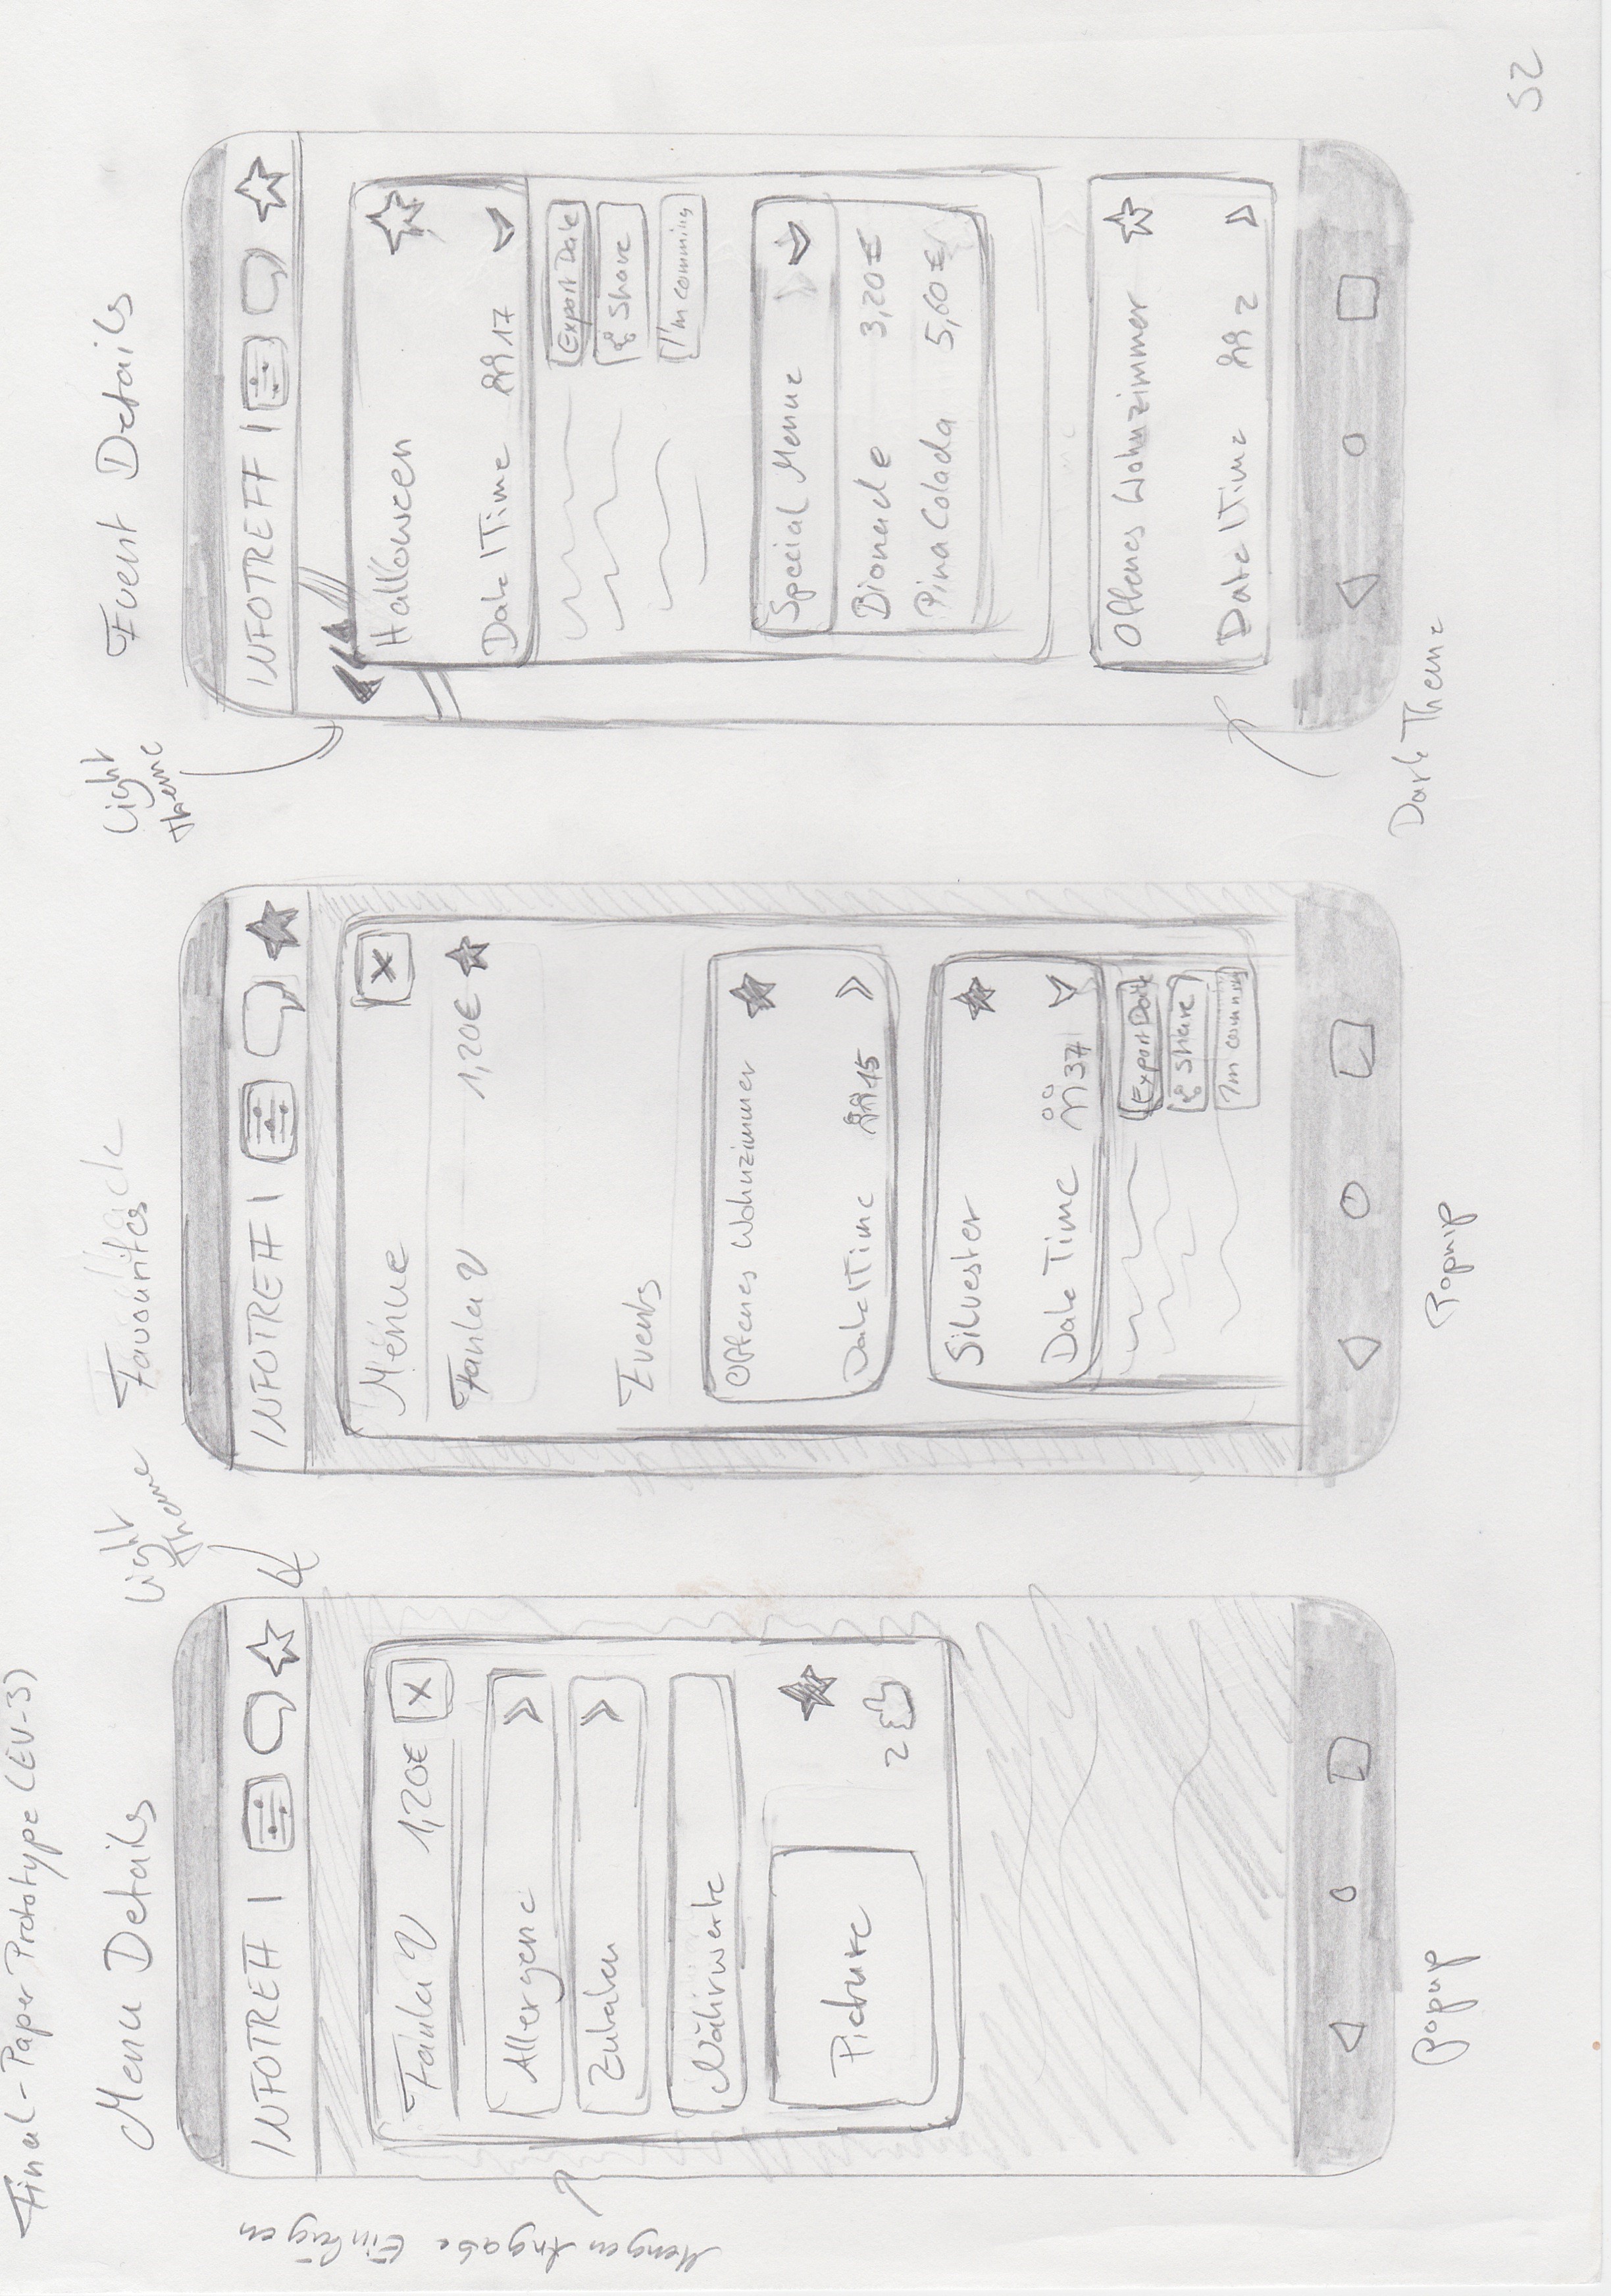 Final-Paper Prototype (EV-3)
Menu Details
Mengen Angabe Einfügen
Light
Theme
INFOTREFF |
Fanta V 1,20€ X
Allergene
Zutaten
Nährwerte
Picture
2
Popup
Favourites
INFOTREFF |
Menue X
Fanta V 1,20€
Events
Offenes Wohnzimmer
Date|Time 15
Silvester
Date Time 37
Export Date
Share
I'm comming
Popup
Light
Theme
Event Details
INFOTREFF |
Halloween
Date|Time 17
Export Date
Share
I'm comming
Special Menue
Bionade 3,20€
Pina Colada 5,60€
Offenes Wohnzimmer
Date|Time 2
Dark Theme
S2